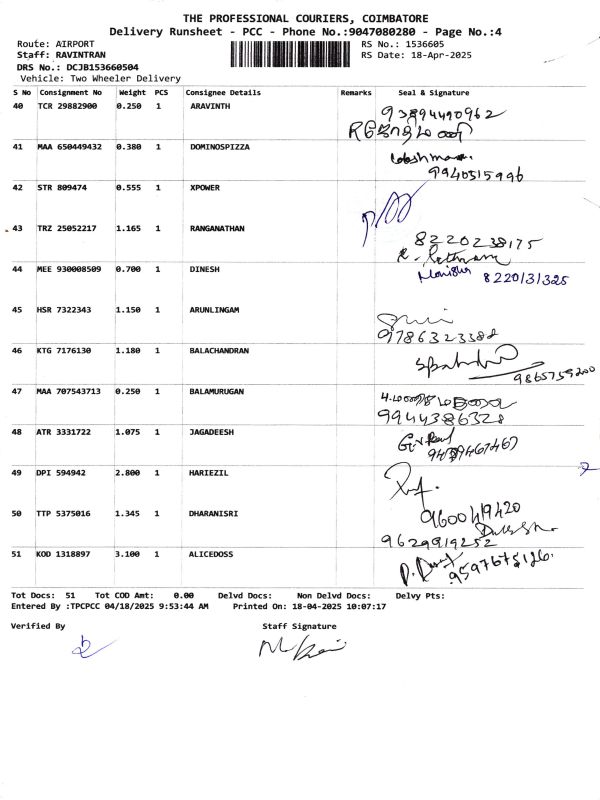 THE PROFESSIONAL COURIERS, COIMBATORE
Delivery Runsheet - PCC - Phone No.:9047080280 - Page No.:4
Route: AIRPORT RS No.: 1536605
Staff: RAVINTRAN RS Date: 18-Apr-2025
DRS No.: DCJB153660504
Vehicle: Two Wheeler Delivery
S No Consignment No Weight PCS Consignee Details Remarks Seal & Signature
40 TCR 29882900 0.250 1 ARAVINTH
93894490962
41 MAA 650449432 0.380 1 DOMINOSPIZZA
9940515996
42 STR 809474 0.555 1 XPOWER
43 TRZ 25052217 1.165 1 RANGANATHAN
8220238175
44 MEE 930008509 0.700 1 DINESH
8220131325
45 HSR 7322343 1.150 1 ARUNLINGAM
9786323382
46 KTG 7176130 1.180 1 BALACHANDRAN
9865759200
47 MAA 707543713 0.250 1 BALAMURUGAN
9944386328
48 ATR 3331722 1.075 1 JAGADEESH
49 DPI 594942 2.800 1 HARIEZIL
50 TTP 5375016 1.345 1 DHARANISRI
9600419420
9629919252
51 KOD 1318897 3.100 1 ALICEDOSS
9597675126.
Tot Docs: 51 Tot COD Amt: 0.00 Delvd Docs: Non Delvd Docs: Delvy Pts:
Entered By :TPCPCC 04/18/2025 9:53:44 AM Printed On: 18-04-2025 10:07:17
Verified By Staff Signature